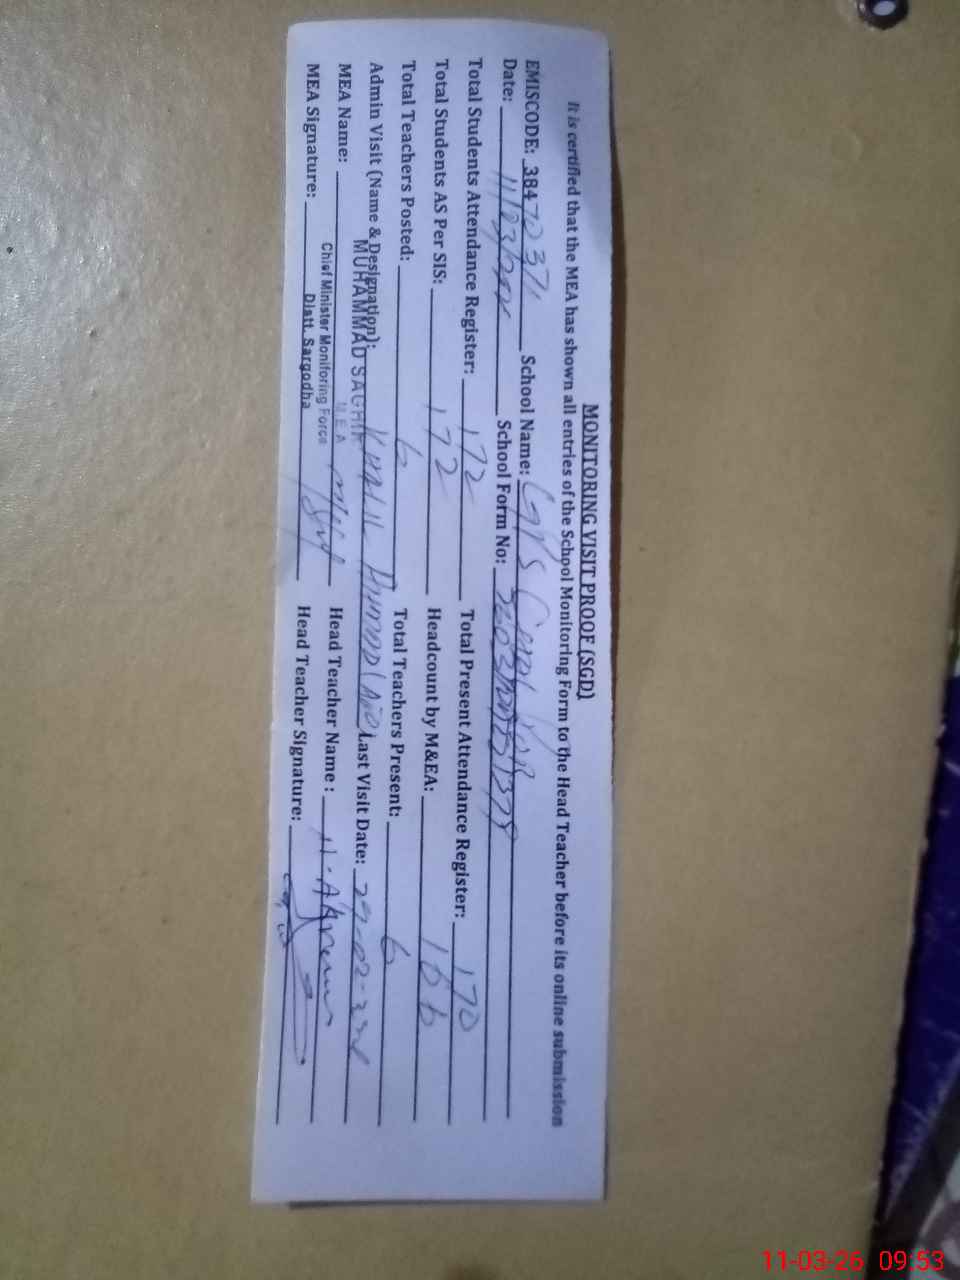 MONITORING VISIT PROOF (SGD)
It is certified that the MEA has shown all entries of the School Monitoring Form to the Head Teacher before its online submission
EMISCODE: 38470371 School Name: GPS
Date: School Form No:
Total Students Attendance Register: 172 Total Present Attendance Register: 170
Total Students AS Per SIS: 172 Headcount by M&EA: 166
Total Teachers Posted: 6 Total Teachers Present: 6
Admin Visit (Name & Designation): Last Visit Date:
MUHAMMAD SAGHIR
MEA Name: M.E.A Head Teacher Name : M. Akram
Chief Minister Monitoring Force
MEA Signature: Distt. Sargodha Head Teacher Signature:
11-03-26 09:53